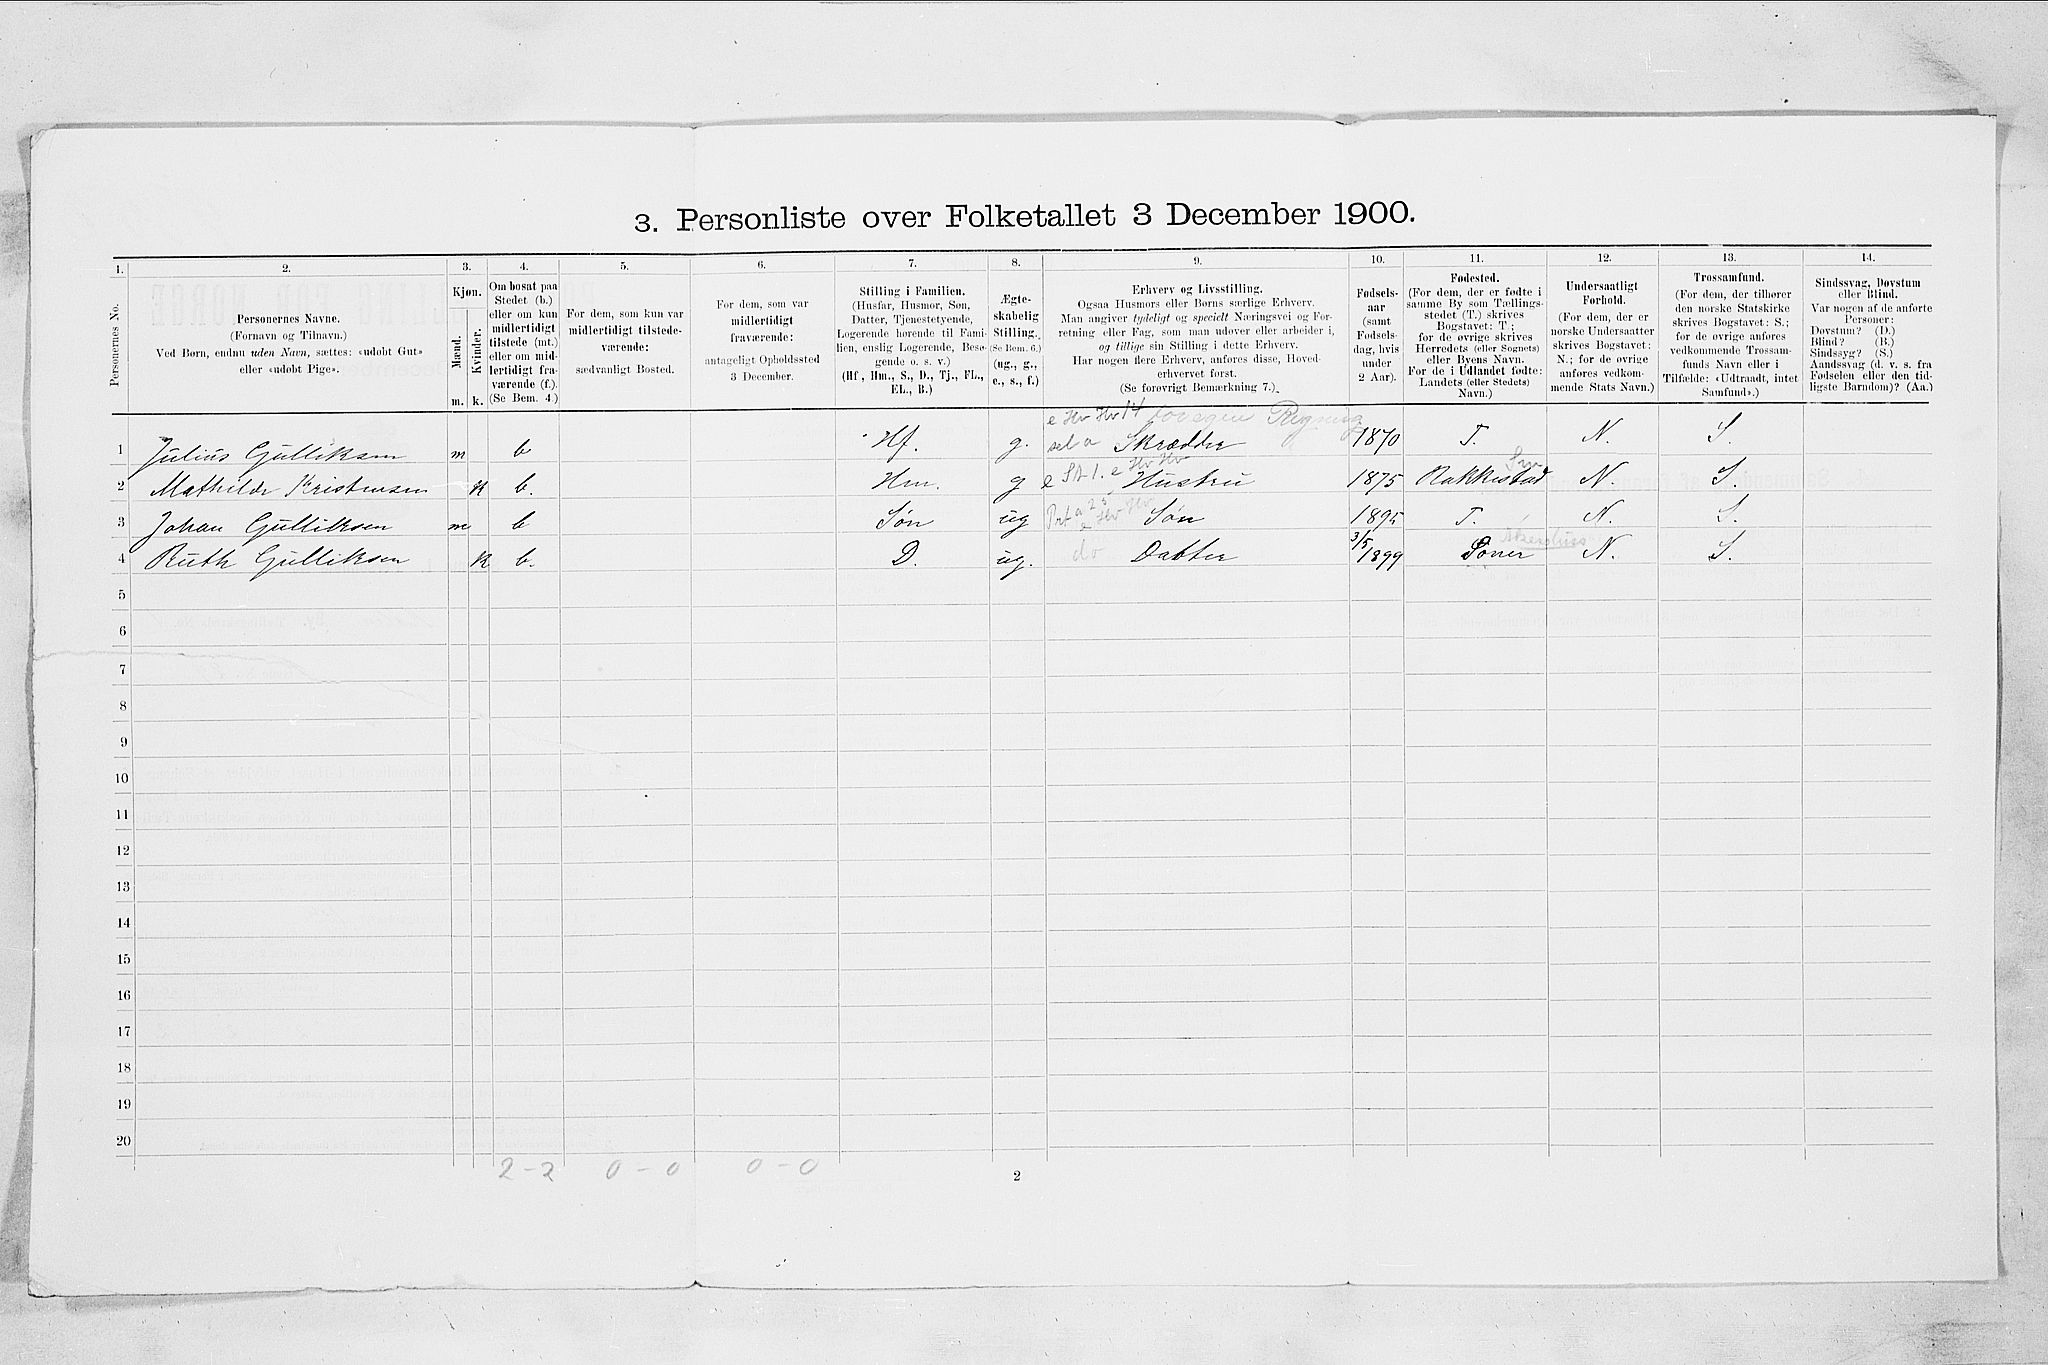 3. Personliste over Folketallet 3 December 1900.
1. 2. 3. 4. 5. 6. 7. 8. 9. 10. 11. 12. 13. 14.
Personernes No.
Personernes Navne.
(Fornavn og Tilnavn.)
Ved Børn, endnu uden Navn, sættes: «udøbt Gut»
eller «udøbt Pige».
Kjøn.
Mænd.
Kvinder.
m. k.
Om bosat paa
Stedet (b.)
eller om kun
midlertidigt
tilstede (mt.)
eller om mid-
lertidigt fra-
værende (f.)
(Se Bem. 4.)
For dem, som kun var
midlertidigt tilstede-
værende:
sædvanligt Bosted.
For dem, som var
midlertidigt
fraværende:
antageligt Opholdssted
3 December.
Stilling i Familien.
(Husfar, Husmor, Søn,
Datter, Tjenestetyende,
Logerende hørende til Fami-
lien, enslig Logerende, Besø-
gende o. s. v.)
(Hf, Hm., S., D., Tj., FL.,
EL., B.)
Ægte-
skabelig
Stilling.
(Se Bem. 6.)
(ug., g.,
e., s., f.)
Erhverv og Livsstilling.
Ogsaa Husmors eller Børns særlige Erhverv.
Man angiver tydeligt og specielt Næringsvei og For-
retning eller Fag, som man udøver eller arbeider i,
og tillige sin Stilling i dette Erhverv.
Har nogen flere Erhverv, anføres disse, Hoved-
erhvervet først.
(Se forøvrigt Bemærkning 7.)
Fødsels-
aar
(samt
Fødsels-
dag, hvis
under
2 Aar).
Fødested.
(For dem, der er fødte i
samme By som Tællings-
stedet (T.) skrives
Bogstavet: T.;
for de øvrige skrives
Herredets (eller Sognets)
eller Byens Navn.
For de i Udlandet fødte:
Landets (eller Stedets)
Navn.)
Undersaatligt
Forhold.
(For dem, der er
norske Undersaatter
skrives Bogstavet:
N.; for de øvrige
anføres vedkom-
mende Stats Navn.)
Trossamfund.
(For dem, der tilhører
den norske Statskirke
skrives Bogstavet: S.;
for de øvrige anføres
vedkommende Trossam-
funds Navn eller i
Tilfælde: «Udtraadt, intet
Samfund».)
Sindssvag, Døvstum
eller Blind.
Var nogen af de anførte
Personer:
Døvstum? (D.)
Blind? (B.)
Sindssyg? (S.)
Aandssvag (d. v. s. fra
Fødselen eller den tid-
ligste Barndom)? (Aa.)
e Hv Hv 14 for egen Regning
1 Julius Gulliksen m b Hf. g. sel a Skrædder 1870 T. N. S.
2 Mathilde Kristensen k b. Hm. g e St 1. e Hv Hv Hustru 1875 Rakkestad N. S.
3 Johan Gulliksen m b Søn ug Prt a 25 e Hv Hv Søn 1895 T. N. S.
4 Ruth Gulliksen k b. D. ug. do Datter 3/5 1899 N. S.
Akershus
5
6
7
8
9
10
11
12
13
14
15
16
17
18
19
20
2 - 2 0 - 0 0 - 0
2